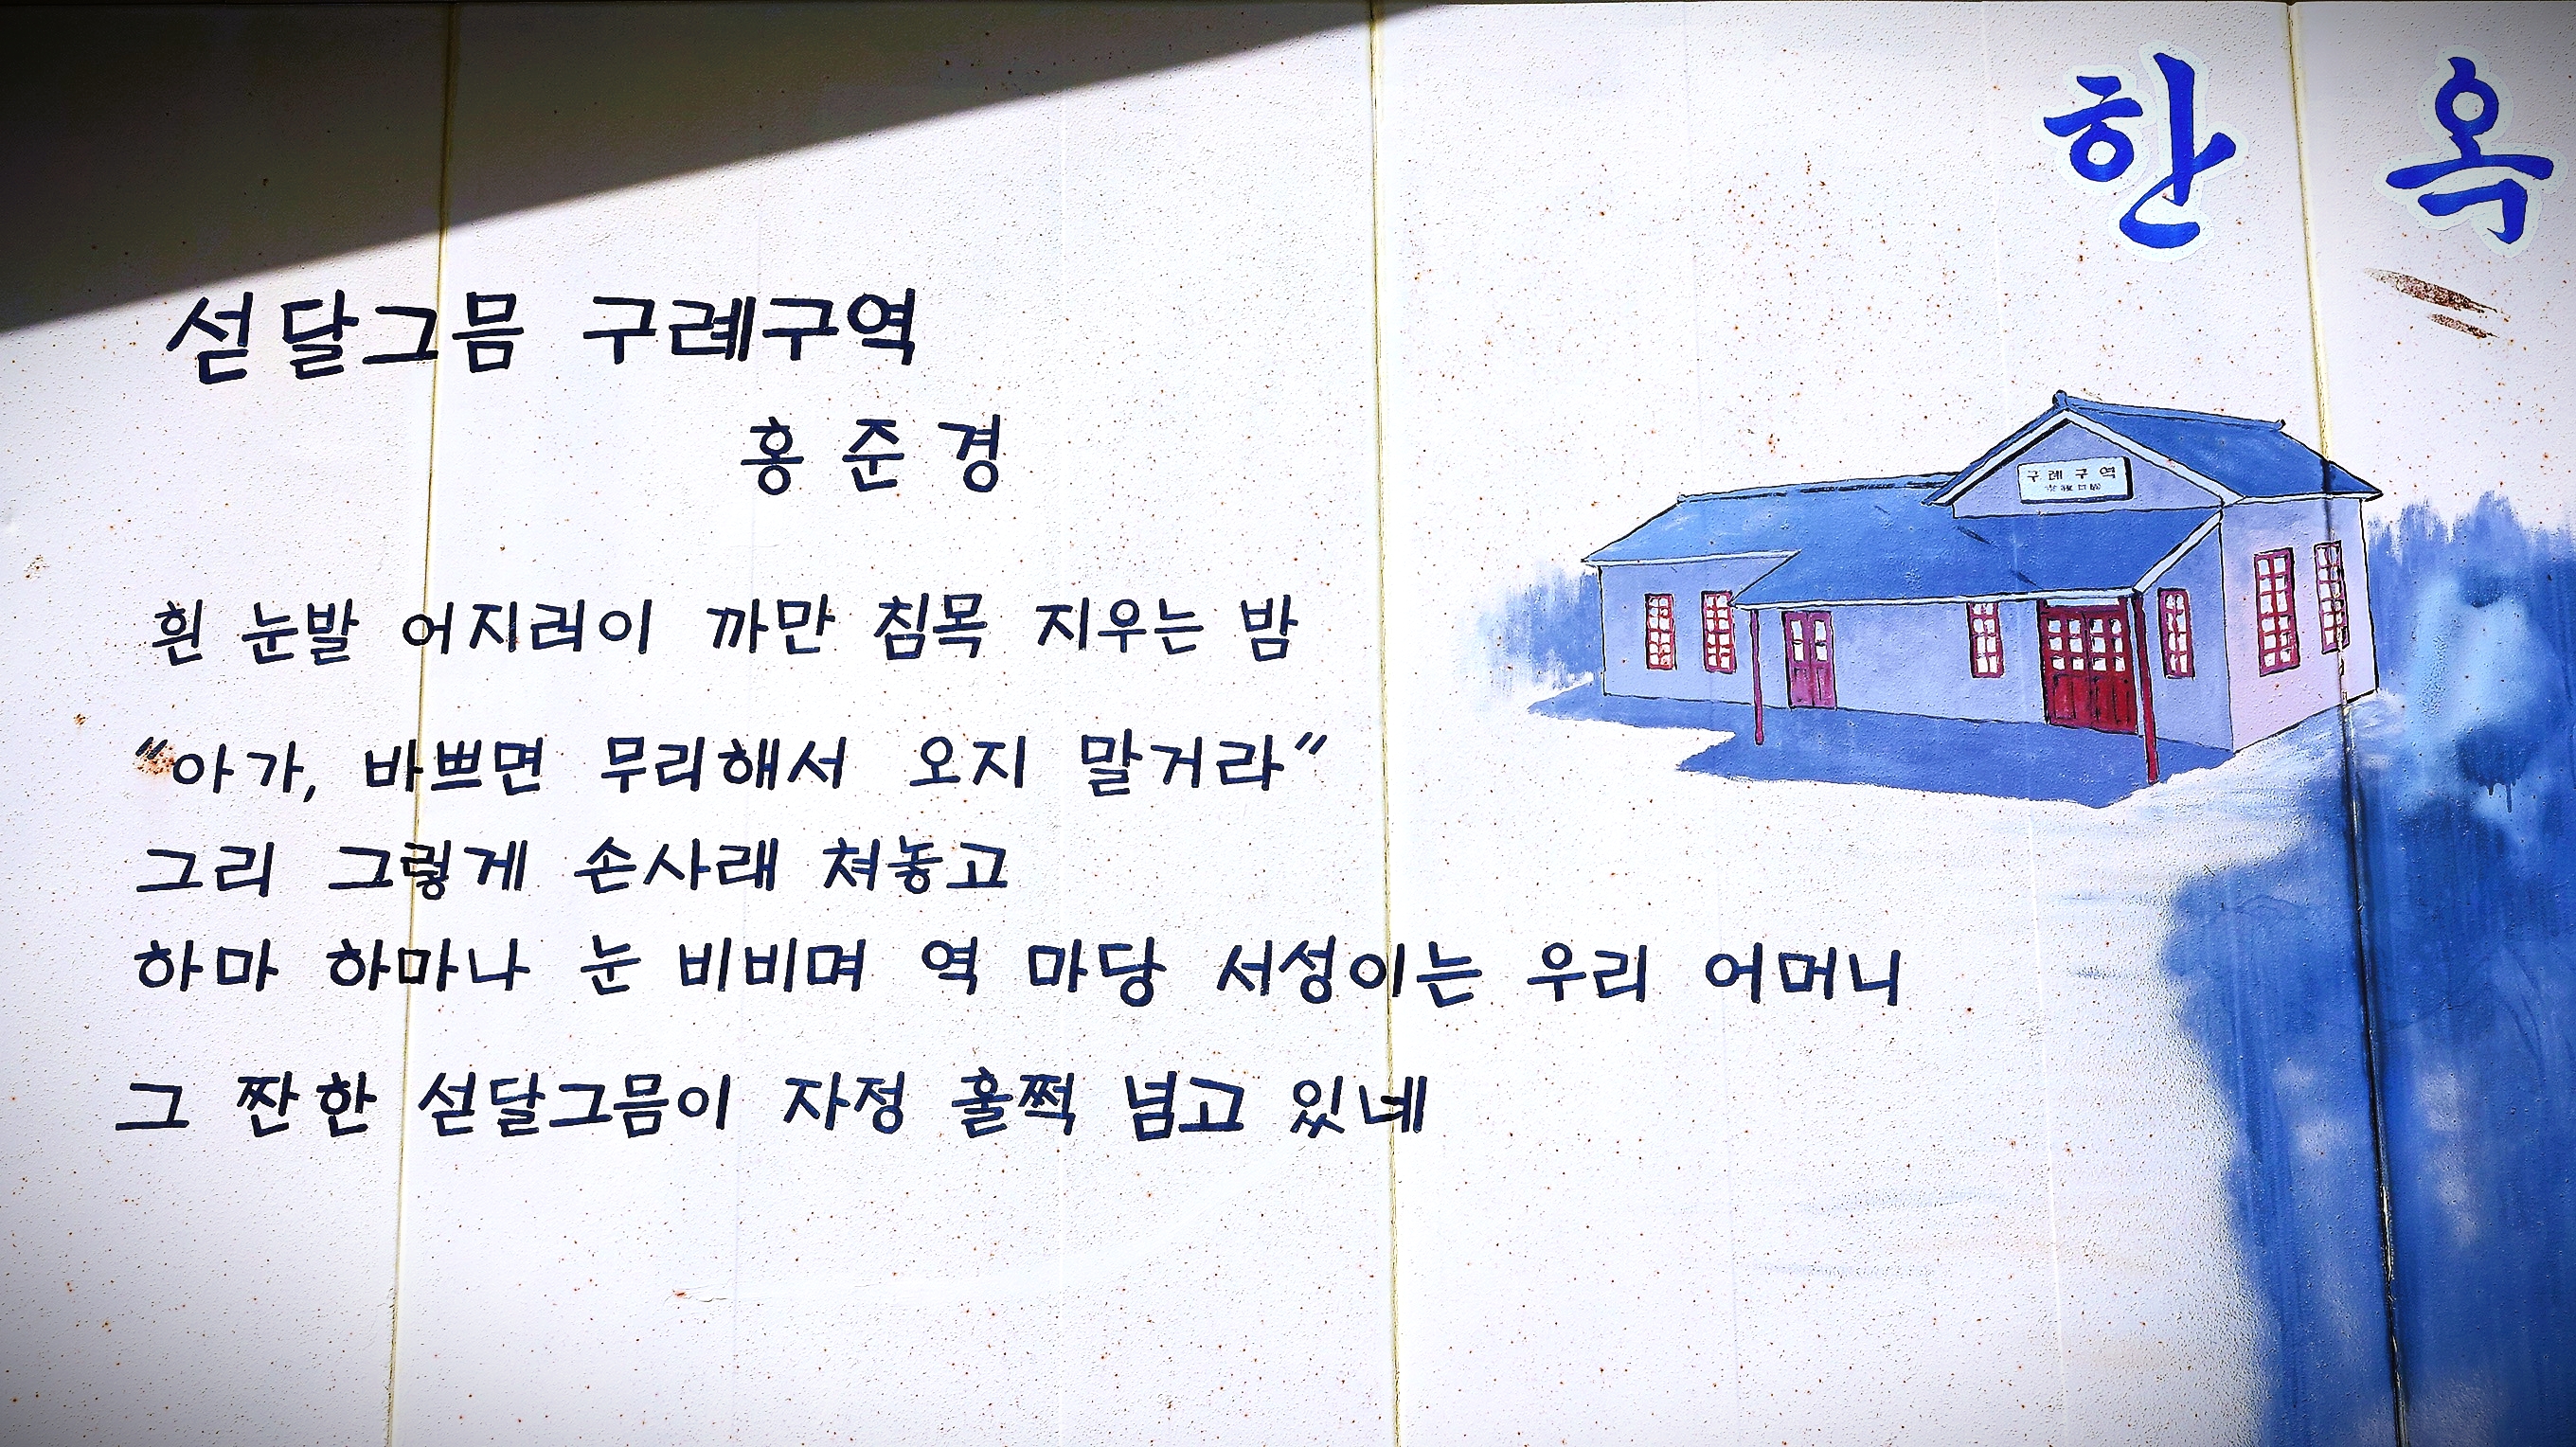 한옥
섣달그믐 구례구역
홍준경
흰 눈발 어지러이 까만 침목 지우는 밤
"아가, 바쁘면 무리해서 오지 말거라"
그리 그렇게 손사래 쳐놓고
하마 하마나 눈 비비며 역 마당 서성이는 우리 어머니
그 짠한 섣달그믐이 자정 훌쩍 넘고 있네
구례구역